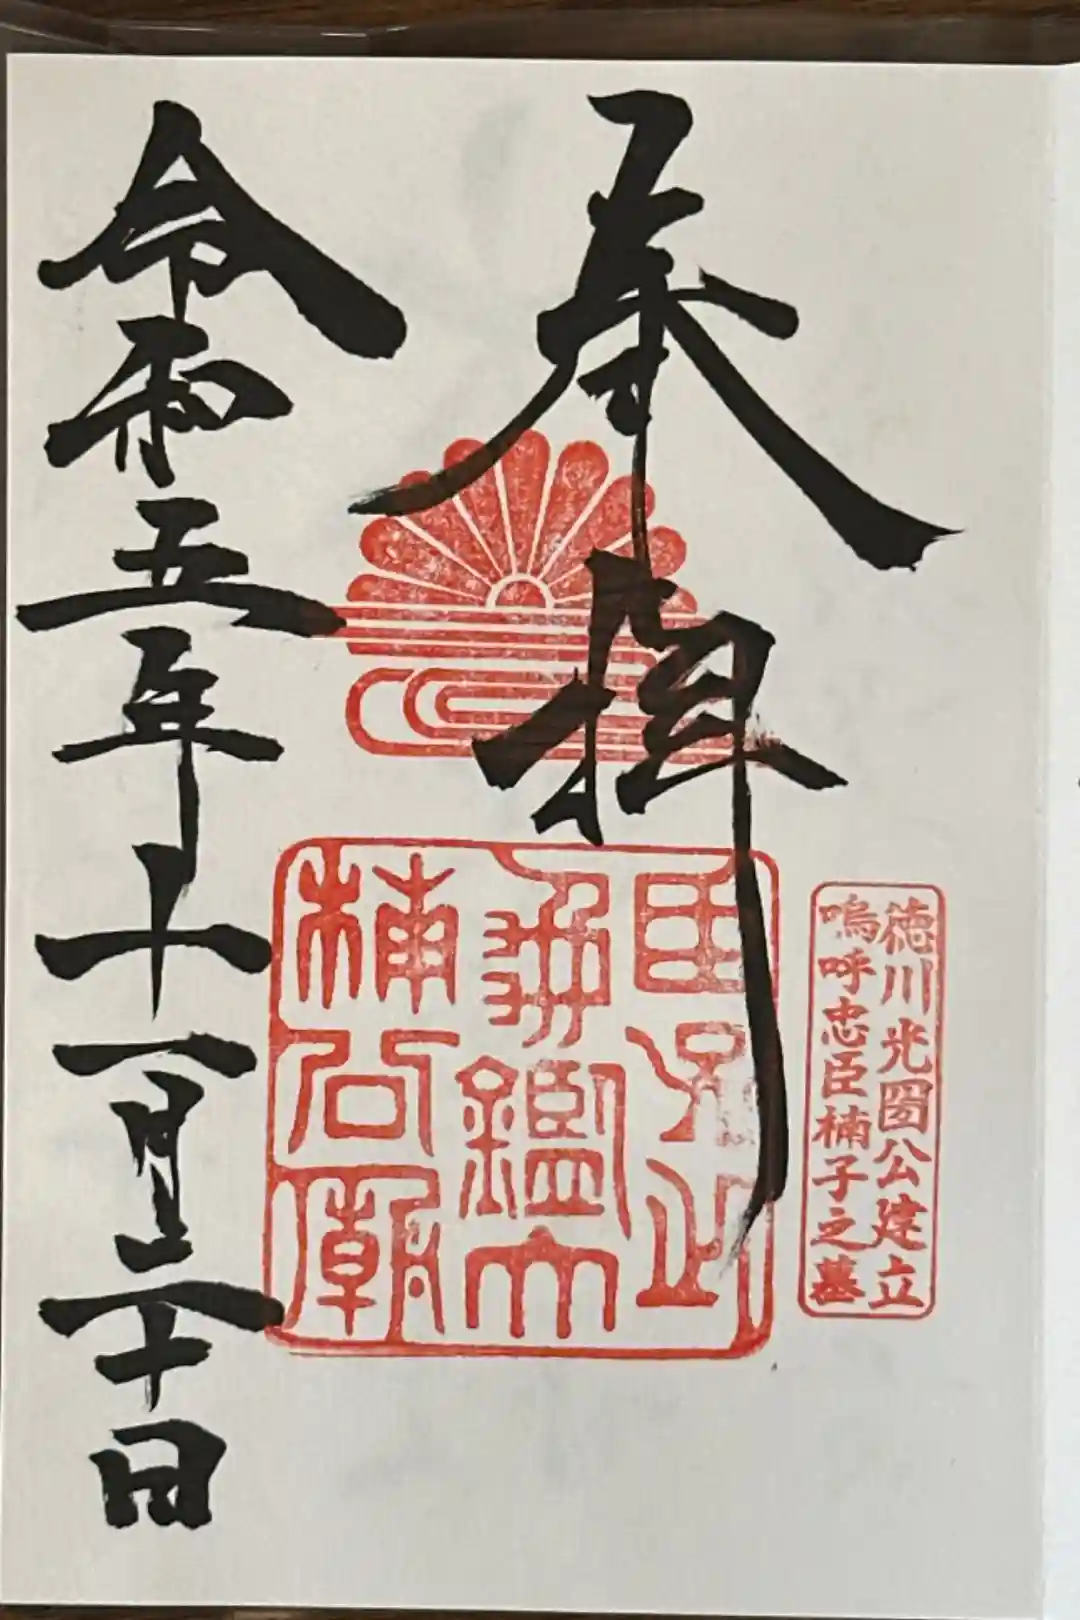 徳川光圀公建立
嗚呼忠臣楠子之墓
奉拝
臣子之
龜鑑大
楠公廟
令和五年十一月二十日